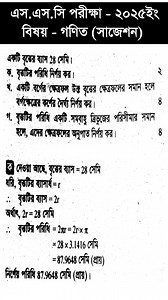 এস.এস.সি পরীক্ষা - ২০২৫ইং
বিষয় - গণিত (সাজেশন)
একটি বৃত্তের ব্যাস 28 সেমি।
ক. বৃত্তটির পরিধি নির্ণয় কর। ২
খ. একটি বর্গের ক্ষেত্রফল উক্ত বৃত্তের ক্ষেত্রফলের সমান হলে
বর্গক্ষেত্রের বর্গের দৈর্ঘ্য নির্ণয় কর। ৪
গ. বৃত্তটির পরিধি একটি সমবাহু ত্রিভুজের পরিসীমার সমান
হলে, এদের ক্ষেত্রফলের অনুপাত নির্ণয় কর। ৪
দেওয়া আছে, বৃত্তের ব্যাস = 28 সেমি।
ধরি, বৃত্তটির ব্যাসার্ধ = r
∴ বৃত্তটির ব্যাস = 2r
অর্থাৎ, 2r = 28 সেমি.
∴ বৃত্তটির পরিধি = 2πr = 2r × π
= 28 × 3.1416 সেমি
= 87.9648 সেমি (প্রায়)
নির্ণেয় পরিধি 87.9648 সেমি (প্রায়)।